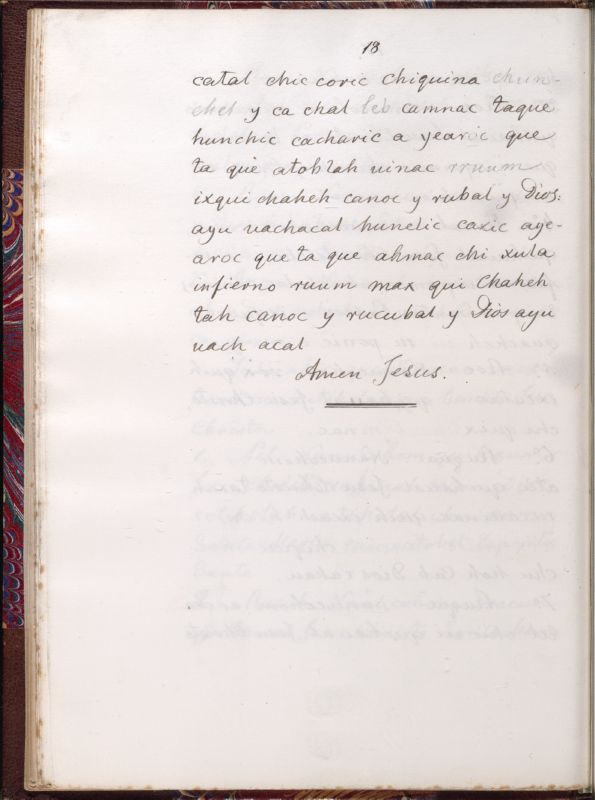 18
catal chic coric chiquina chun-
chel y ca chal leb camnac taque
hunchic cacharic a yearoc que
ta que atoblah uinac rruum
ixqui chaheh canoc y rubal y Dios:
ayu uachacal hunelic caxic aye-
aroc que ta que ahmac chi xula
infierno ruum max qui Chaheh
tah canoc y rucubal y Dios ayu
uach acal
Amen Jesus.